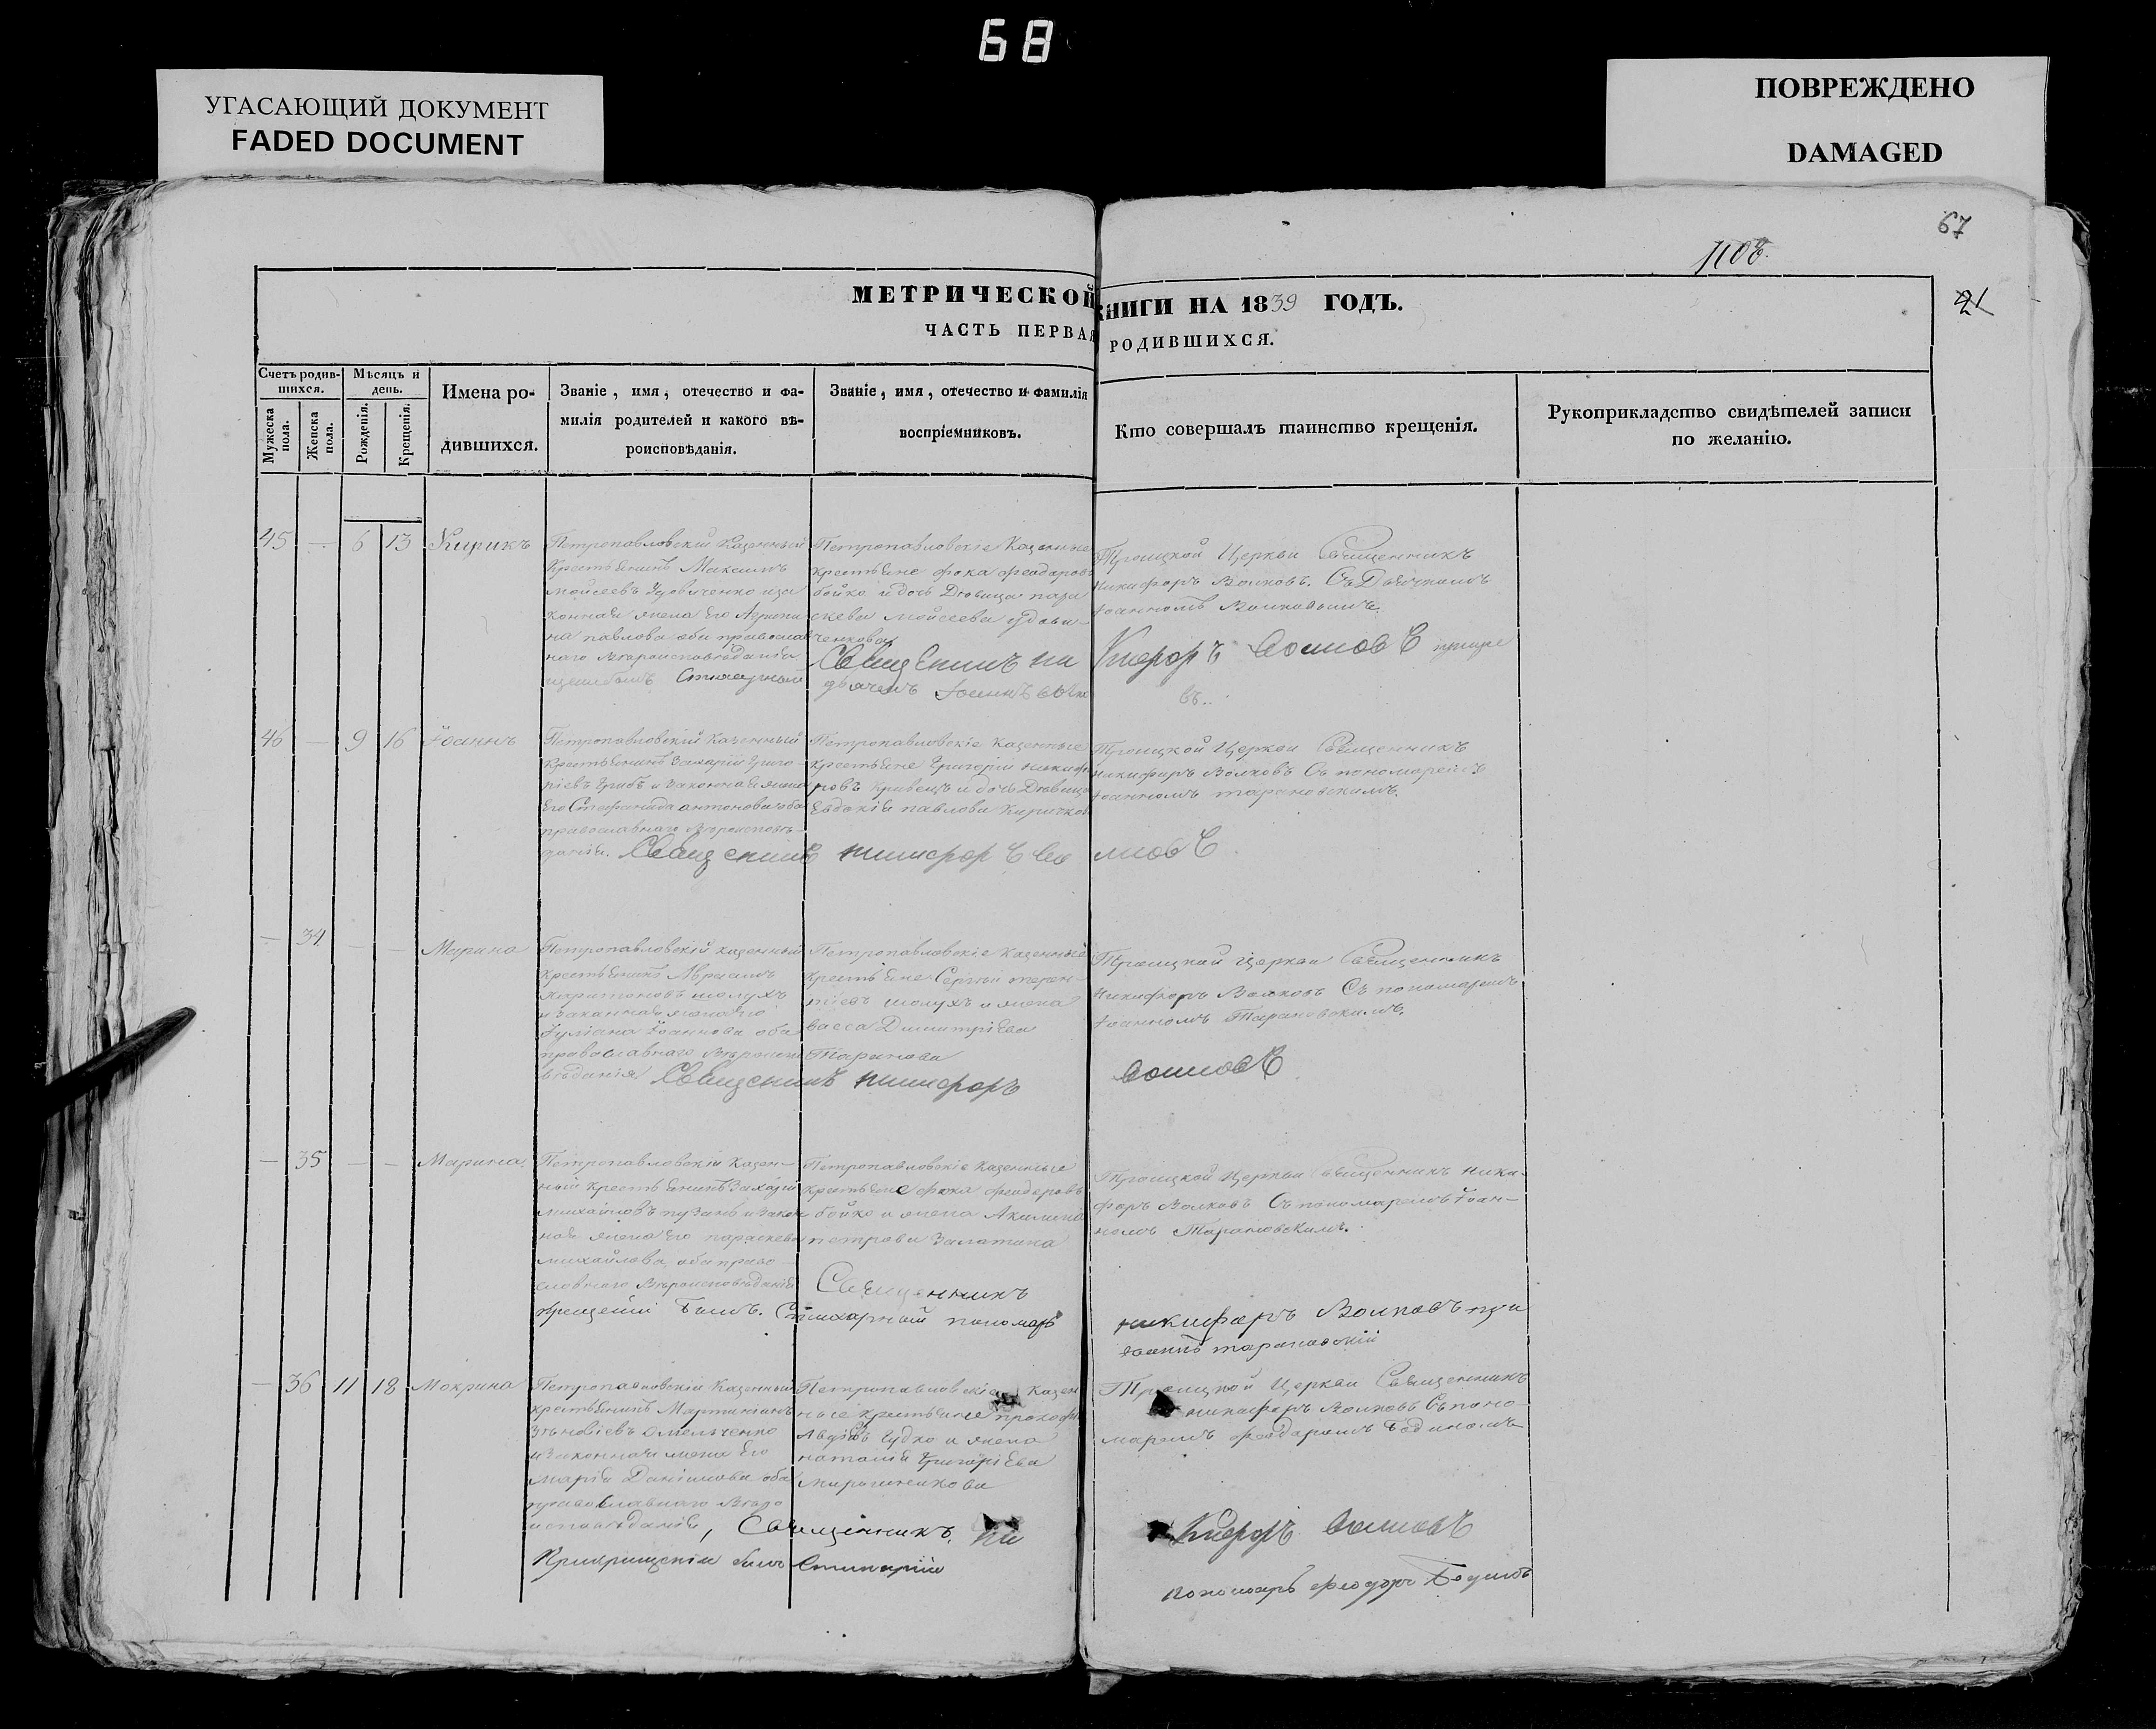 68
УГАСАЮЩИЙ ДОКУМЕНТ
FADED DOCUMENT
ПОВРЕЖДЕНО
DAMAGED
67
МЕТРИЧЕСКОЙ КНИГИ НА 1839 ГОДЪ.
21
ЧАСТЬ ПЕРВАЯ РОДИВШИХСЯ.
Счетъ родив-
шихся.
Мужеска
пола.
Женска
пола.
Мѣсяцъ и
день.
Рожденія.
Крещенія.
Имена ро-
дившихся.
Званіе, имя, отечество и фа-
милія родителей и какого вѣ-
роисповѣданія.
Званіе, имя, отечество и фамилія
воспріемниковъ.
Кто совершалъ таинство крещенія.
Рукоприкладство свидѣтелей записи
по желанію.
45 — 6 13 Кирикъ
Петропавловскій Казенный
Крестьянинъ Максимъ
Моисеевъ
жена его
на павлова оба правосла
наго вѣроисповѣданія
Петропавловскіе Казенные
крестьяне фока феодоровъ
бойко и дочь Дѣвица пара
скева Моисеева
Троицкой Церкви Священникъ
Никифоръ Волковъ. Съ Дьячкомъ
Іоанномъ Волковымъ.
Священникъ Никифоръ Волковъ
46 — 9 16 Іоаннъ
Петропавловскій Казенный
Крестьянинъ Захарій Григо-
ріевъ Грибъ и законная жена
Его Стефанида антонова оба
православнаго вѣроисповѣ-
данія.
Петропавловскіе Казенные
крестьяне Григорій Никифо
ровъ Кривецъ и дочь Дѣвица
Евдокія павлова Киричкова
Троицкой Церкви Священникъ
Никифоръ Волковъ Съ пономаремъ
Іоанномъ тарановскимъ.
Священникъ Никифоръ Волковъ
— 34 — — Марина
Петропавловскій Казенный
Крестьянинъ Авраамъ
Харитоновъ шолухъ
и законная жена его
Іуліана Іоаннова оба
православнаго вѣроиспо
вѣданія
Петропавловскіе Казенные
Крестьяне Сергій терен-
тіевъ шолухъ и жена
васса Димитріева
Таранова
Троицкой Церкви Священникъ
Никифоръ Волковъ Съ пономаремъ
Іоанномъ Тарановскимъ.
Священникъ Никифоръ Волковъ
— 35 — — Марина
Петропавловскій Казен-
ный Крестьянинъ Захарій
Михайловъ пузань и закон
ная жена его параскева
михайлова оба право-
славнаго вѣроисповѣданія
Петропавловскіе Казенные
Крестьяне фока феодоровъ
бойко и жена Акилина
петрова Залатина
Троицкой Церкви Священникъ Ники-
форъ Волковъ Съ пономаремъ Іоан-
номъ Тарановскимъ.
Священникъ Никифоръ Волковъ при
крещеніи былъ. Стихарный пономарь Іоаннъ тарановскій
— 36 11 18 Мокрина
Петропавловскій Казенный
крестьянинъ Мартиніанъ
Зѣновіевъ Омельченко
и законная жена Его
Марія Даніилова оба
православнаго вѣро
исповѣданія,
Петропавловскіе Казен
ные крестьяне прокофій
Гудко и жена
наталія Григоріева
Мирошникова
Троицкой Церкви Священникъ
Никифоръ Волковъ Съ поно-
маремъ феодоромъ Бодиномъ
Священникъ Никифоръ Волковъ
При крещеніи былъ Стихарній пономарь Феодоръ